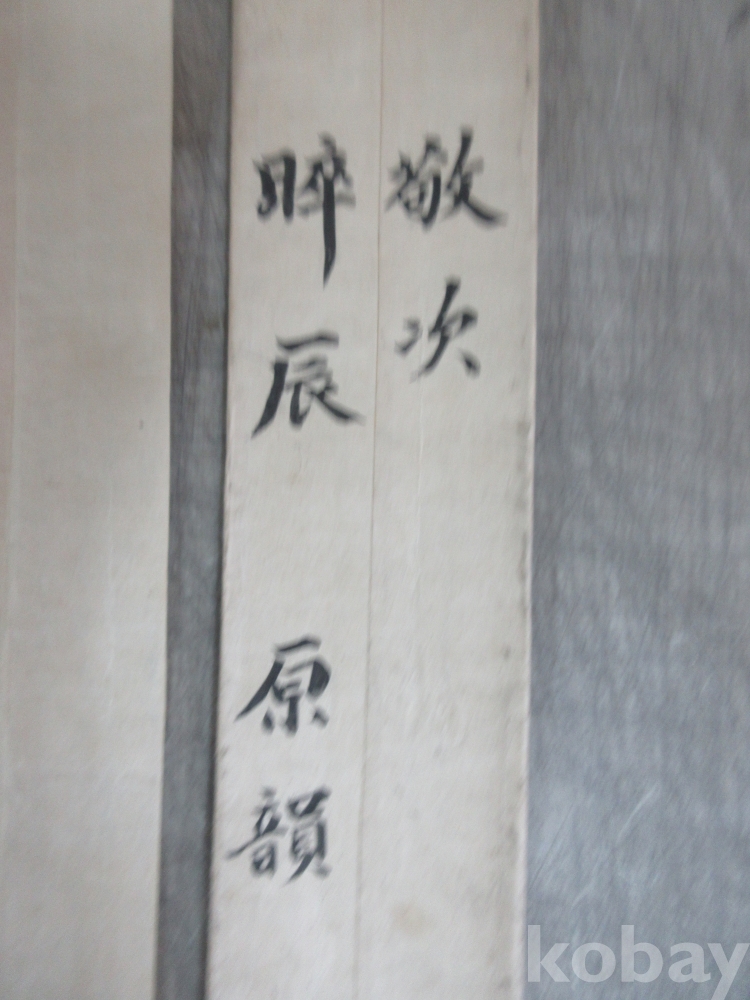 敬次
晬辰 原韻
kobay